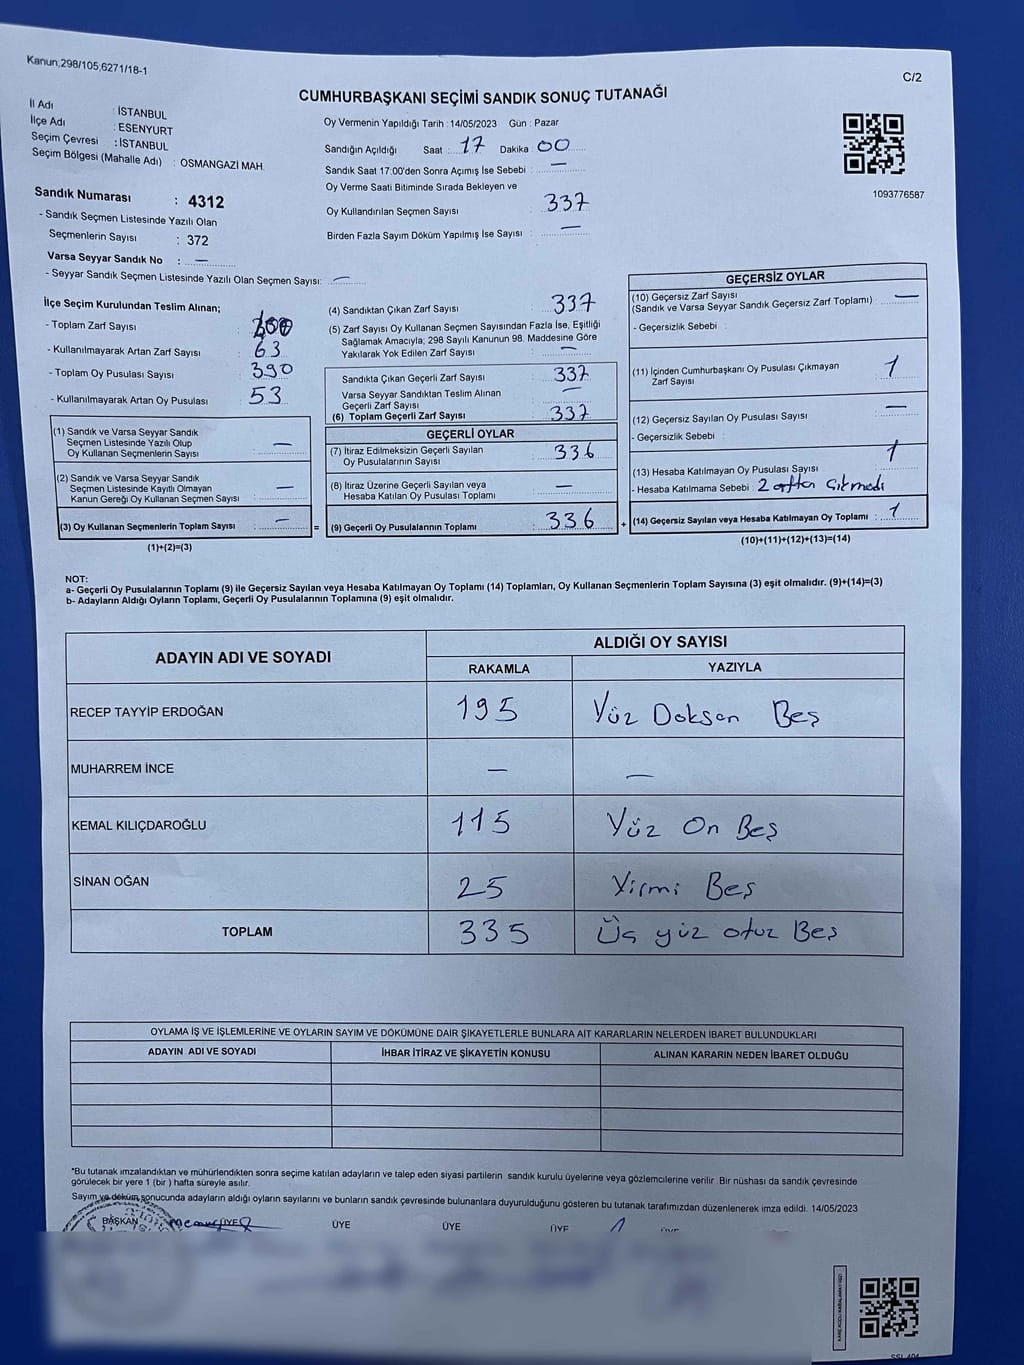 Kanun,298/105,6271/18-1
C/2
CUMHURBAŞKANI SEÇİMİ SANDIK SONUÇ TUTANAĞI
İl Adı : İSTANBUL
İlçe Adı : ESENYURT
Seçim Çevresi : İSTANBUL
Seçim Bölgesi (Mahalle Adı) : OSMANGAZİ MAH.
Oy Vermenin Yapıldığı Tarih : 14/05/2023 Gün : Pazar
Sandığın Açıldığı Saat : 17 Dakika 00
Sandık Saat 17:00'den Sonra Açımış İse Sebebi : —
Oy Verme Saati Bitiminde Sırada Bekleyen ve
Oy Kullandırılan Seçmen Sayısı : 337
Birden Fazla Sayım Döküm Yapılmış İse Sayısı : —
1093776587
Sandık Numarası : 4312
- Sandık Seçmen Listesinde Yazılı Olan
Seçmenlerin Sayısı : 372
Varsa Seyyar Sandık No : —
- Seyyar Sandık Seçmen Listesinde Yazılı Olan Seçmen Sayısı: —
İlçe Seçim Kurulundan Teslim Alınan;
- Toplam Zarf Sayısı :
- Kullanılmayarak Artan Zarf Sayısı : 63
- Toplam Oy Pusulası Sayısı : 390
- Kullanılmayarak Artan Oy Pusulası : 53
(1) Sandık ve Varsa Seyyar Sandık
Seçmen Listesinde Yazılı Olup
Oy Kullanan Seçmenlerin Sayısı : —
(2) Sandık ve Varsa Seyyar Sandık
Seçmen Listesinde Kayıtlı Olmayan
Kanun Gereği Oy Kullanan Seçmen Sayısı : —
(3) Oy Kullanan Seçmenlerin Toplam Sayısı : — =
(1)+(2)=(3)
(4) Sandıktan Çıkan Zarf Sayısı : 337
(5) Zarf Sayısı Oy Kullanan Seçmen Sayısından Fazla İse, Eşitliği
Sağlamak Amacıyla; 298 Sayılı Kanunun 98. Maddesine Göre
Yakılarak Yok Edilen Zarf Sayısı : —
Sandıkta Çıkan Geçerli Zarf Sayısı : 337
Varsa Seyyar Sandıktan Teslim Alınan
Geçerli Zarf Sayısı : —
(6) Toplam Geçerli Zarf Sayısı : 337
GEÇERLİ OYLAR
(7) İtiraz Edilmeksizin Geçerli Sayılan
Oy Pusulalarının Sayısı : 336
(8) İtiraz Üzerine Geçerli Sayılan veya
Hesaba Katılan Oy Pusulası Toplamı : —
(9) Geçerli Oy Pusulalarının Toplamı : 336 +
GEÇERSİZ OYLAR
(10) Geçersiz Zarf Sayısı
(Sandık ve Varsa Seyyar Sandık Geçersiz Zarf Toplamı) : —
- Geçersizlik Sebebi :
(11) İçinden Cumhurbaşkanı Oy Pusulası Çıkmayan
Zarf Sayısı : 1
(12) Geçersiz Sayılan Oy Pusulası Sayısı : —
- Geçersizlik Sebebi :
(13) Hesaba Katılmayan Oy Pusulası Sayısı : 1
- Hesaba Katılmama Sebebi : Zarftan Çıkmadı
(14) Geçersiz Sayılan veya Hesaba Katılmayan Oy Toplamı : 1
(10)+(11)+(12)+(13)=(14)
NOT:
a- Geçerli Oy Pusulalarının Toplamı (9) ile Geçersiz Sayılan veya Hesaba Katılmayan Oy Toplamı (14) Toplamları, Oy Kullanan Seçmenlerin Toplam Sayısına (3) eşit olmalıdır. (9)+(14)=(3)
b- Adayların Aldığı Oyların Toplamı, Geçerli Oy Pusulalarının Toplamına (9) eşit olmalıdır.
ADAYIN ADI VE SOYADI
ALDIĞI OY SAYISI
RAKAMLA YAZIYLA
RECEP TAYYİP ERDOĞAN 195 Yüz Doksan Beş
MUHARREM İNCE — —
KEMAL KILIÇDAROĞLU 115 Yüz On Beş
SİNAN OĞAN 25 Yirmi Beş
TOPLAM 335 Üç yüz otuz Beş
OYLAMA İŞ VE İŞLEMLERİNE VE OYLARIN SAYIM VE DÖKÜMÜNE DAİR ŞİKAYETLERLE BUNLARA AİT KARARLARIN NELERDEN İBARET BULUNDUKLARI
ADAYIN ADI VE SOYADI İHBAR İTİRAZ VE ŞİKAYETİN KONUSU ALINAN KARARIN NEDEN İBARET OLDUĞU
*Bu tutanak imzalandıktan ve mühürlendikten sonra seçime katılan adayların ve talep eden siyasi partilerin sandık kurulu üyelerine veya gözlemcilerine verilir .Bir nüshası da sandık çevresinde
görülecek bir yere 1 (bir ) hafta süreyle asılır.
Sayım ve döküm sonucunda adayların aldığı oyların sayılarını ve bunların sandık çevresinde bulunanlara duyurulduğunu gösteren bu tutanak tarafımızdan düzenlenerek imza edildi. 14/05/2023
BAŞKAN ÜYE ÜYE ÜYE ÜYE